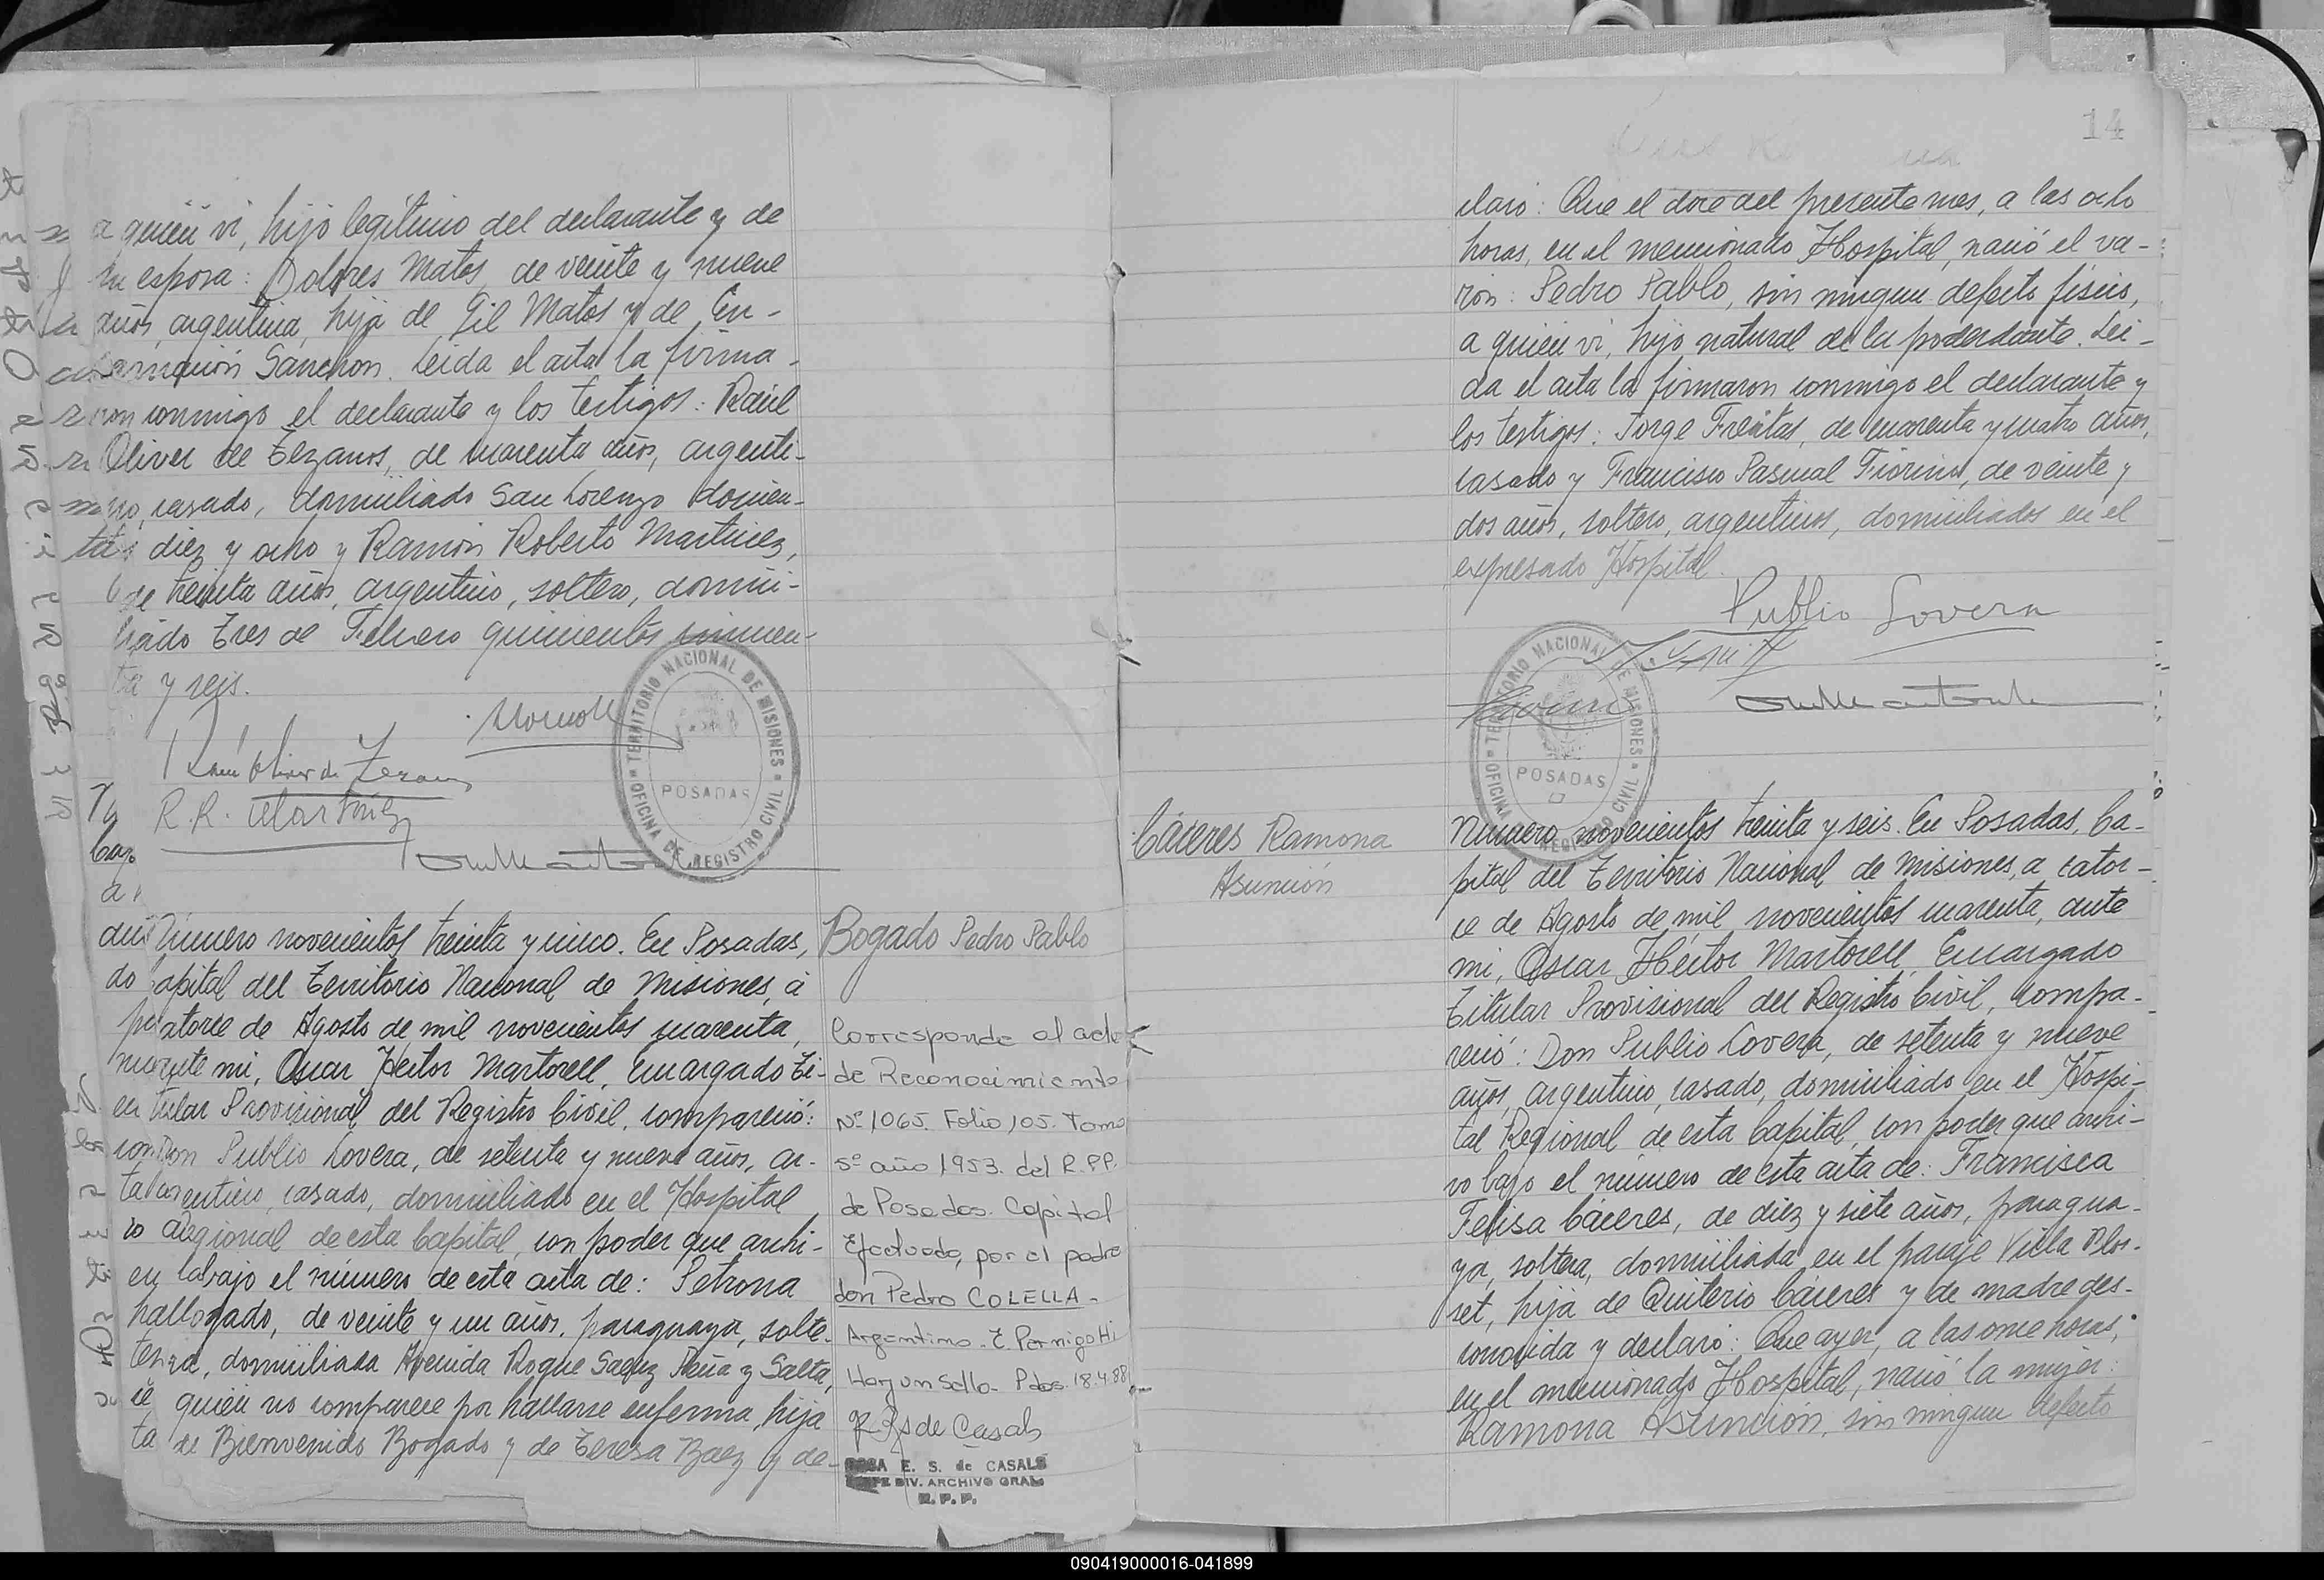 a quien vi, hijo legítimo del declarante y de
su esposa: Dolores Matos, de veinte y nueve
años, argentina, hija de Gil Matos y de En-
carnación Sanchon. Leida el acta la firma-
ron conmigo el declarante y los testigos: Raúl
Oliver de Tezanos, de cuarenta años, argenti-
no, casado, domiciliado San Lorenzo doscien-
tos diez y ocho y Ramón Roberto Martinez,
de treinta años, argentino, soltero, domici-
liado Tres de Febrero quinientos cincuen-
ta y seis.
Raúl Oliver de Tezanos
R. R. Martínez
TERRITORIO NACIONAL DE MISIONES
POSADAS
OFICINA DE REGISTRO CIVIL
Número novecientos treinta y cinco. En Posadas,
Capital del Territorio Nacional de Misiones, a
catorce de Agosto de mil novecientos cuarenta,
ante mi, Oscar Héctor Martorell, Encargado Ti-
tular Provisional del Registro Civil, compareció:
Don Publio Lovera, de setenta y nueve años, ar-
gentino, casado, domiciliado en el Hospital
Regional de esta Capital, con poder que archi-
vo bajo el número de esta acta de: Petrona
Bogado, de veinte y un años, paraguaya, solte-
ra, domiciliada Avenida Roque Saenz Peña y Salta,
quien no comparece por hallarse enferma, hija
de Bienvenido Bogado y de Teresa Baez y de-
Bogado Pedro Pablo
Corresponde al acta
de Reconocimiento
Nº 1065. Folio 105. Tomo
5º año 1953. del R.P.P.
de Posadas. Capital
Efectuado, por el padre
don Pedro COLELLA-
Argentino. E. Pernigotti
Hay un Sello- Pdas. 18.4.88
de Casals
ROSA E. S. de CASALS
JEFE DIV. ARCHIVO GRAL
R. P. P.
14
claró: Que el doce del presente mes, a las ocho
horas, en el mencionado Hospital, nació el va-
rón: Pedro Pablo, sin ningun defecto físico,
a quien vi, hijo natural de la poderdante. Lei-
da el acta la firmaron conmigo el declarante y
los testigos: Jorge Freitas, de cuarenta y cuatro años,
casado y Francisco Pascual Fiorino, de veinte y
dos años, soltero, argentinos, domiciliados en el
expresado Hospital.
Publio Lovera
TERRITORIO NACIONAL DE MISIONES
POSADAS
OFICINA DE REGISTRO CIVIL
Cáceres Ramona
Asunción
Número novecientos treinta y seis. En Posadas, Ca-
pital del Territorio Nacional de Misiones, a cator-
ce de Agosto de mil novecientos cuarenta, ante
mi, Oscar Héctor Martorell, Encargado
Titular Provisional del Registro Civil, compa-
reció: Don Publio Lovera, de setenta y nueve
años, argentino, casado, domiciliado en el Hospi-
tal Regional de esta Capital, con poder que archi-
vo bajo el número de esta acta de: Francisca
Felisa Cáceres, de diez y siete años, paragua-
ya, soltera, domiciliada en el paraje Villa Blos-
set, hija de Quiterio Cáceres y de madre des-
conocida y declaró: Que ayer, a las once horas,
en el mencionado Hospital, nació la mujer:
Ramona Asunción, sin ningun defecto
090419000016-041899